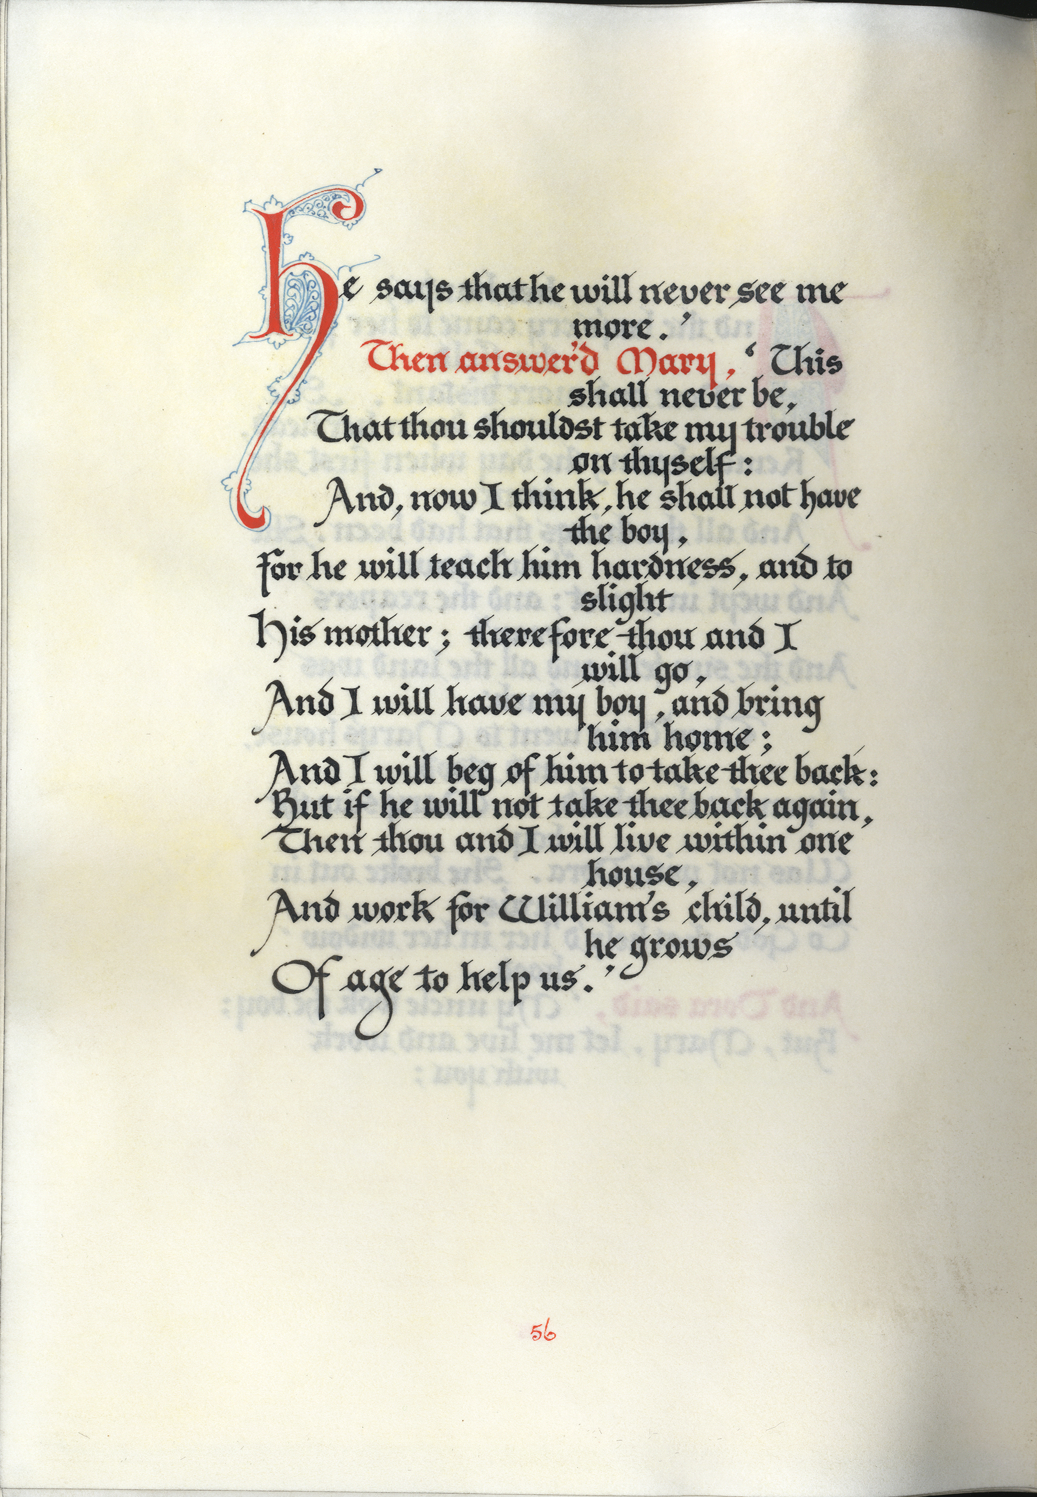 He says that he will never see me
more.’
Then answer'd Mary, ‘This
shall never be,
That thou shouldst take my trouble
on thyself:
And, now I think, he shall not have
the boy,
For he will teach him hardness, and to
slight
His mother; therefore thou and I
will go,
And I will have my boy, and bring
him home;
And I will beg of him to take thee back:
But if he will not take thee back again,
Then thou and I will live within one
house,
And work for William's child, until
he grows
Of age to help us.’
56